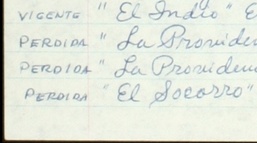 VIGENTE " El Indio" E
PERDIDA " La Providen
PERDIDA " La Providen
PERDIDA " El Socorro"